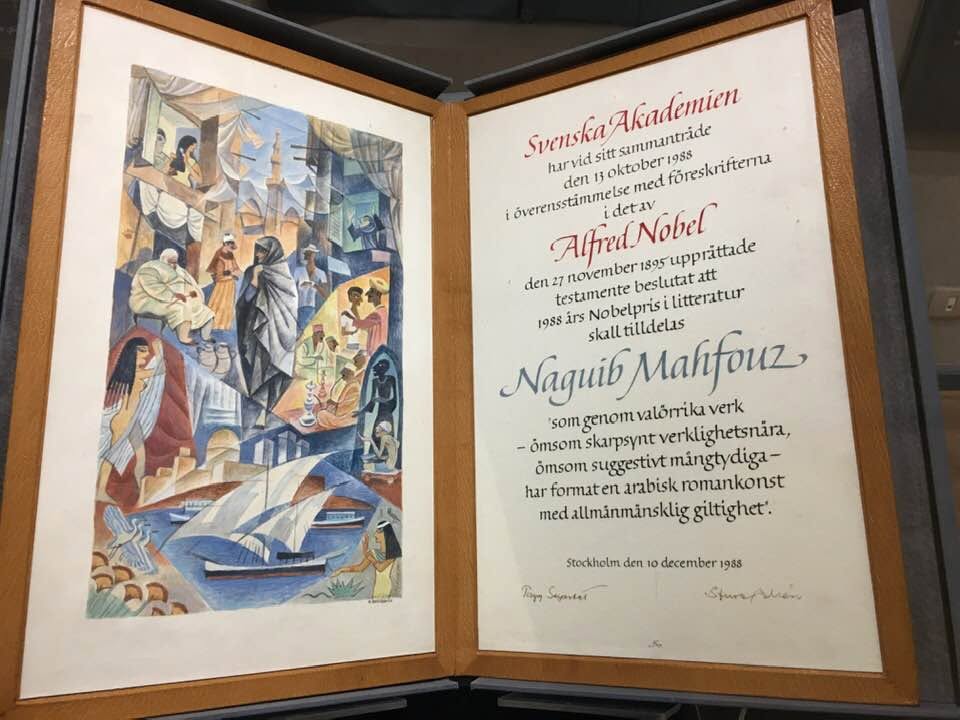 Svenska Akademien
har vid sitt sammanträde
den 13 oktober 1988
i överensstämmelse med föreskrifterna
i det av
Alfred Nobel
den 27 november 1895 upprättade
testamente beslutat att
1988 års Nobelpris i litteratur
skall tilldelas
Naguib Mahfouz
"som genom valörrika verk
– ömsom skarpsynt verklighetsnära,
ömsom suggestivt mångtydiga –
har format en arabisk romankonst
med allmänmänsklig giltighet".
Stockholm den 10 december 1988